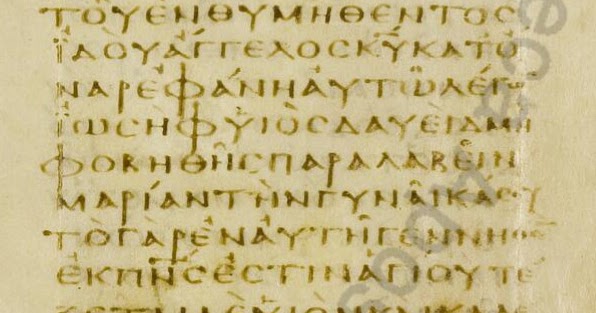 ΤΟΎΕΝΘΥΜΗΘΕΝΤΟϹ
ΪΔΟῪΑΓΓΕΛΟϹΚ̅Υ̅ΚΑΤΌ
ΝΑΡΕΦΆΝΗΑΥΤΩ͂ΛΈΓΩ̅
ΪΩϹΗΦΥἱΟϹΔΑΥΕΙΔΜΗ
ΦΟΒΗΘΗ͂ϹΠΑΡΑΛΑΒΕΙ͂Ν
ΜΑΡΊΑΝΤΗῚΝΓΥΝΑΙ͂ΚΑϹΟΥ
ΤῸΓᾺΡἘΝΑΥΤΗ͂ΓΕΝΝΗΘΕ̅
ἘΚΠ̅Ν̅Ϲ̅ἘϹΤῚΝἈΓΊΟΥΤΕ